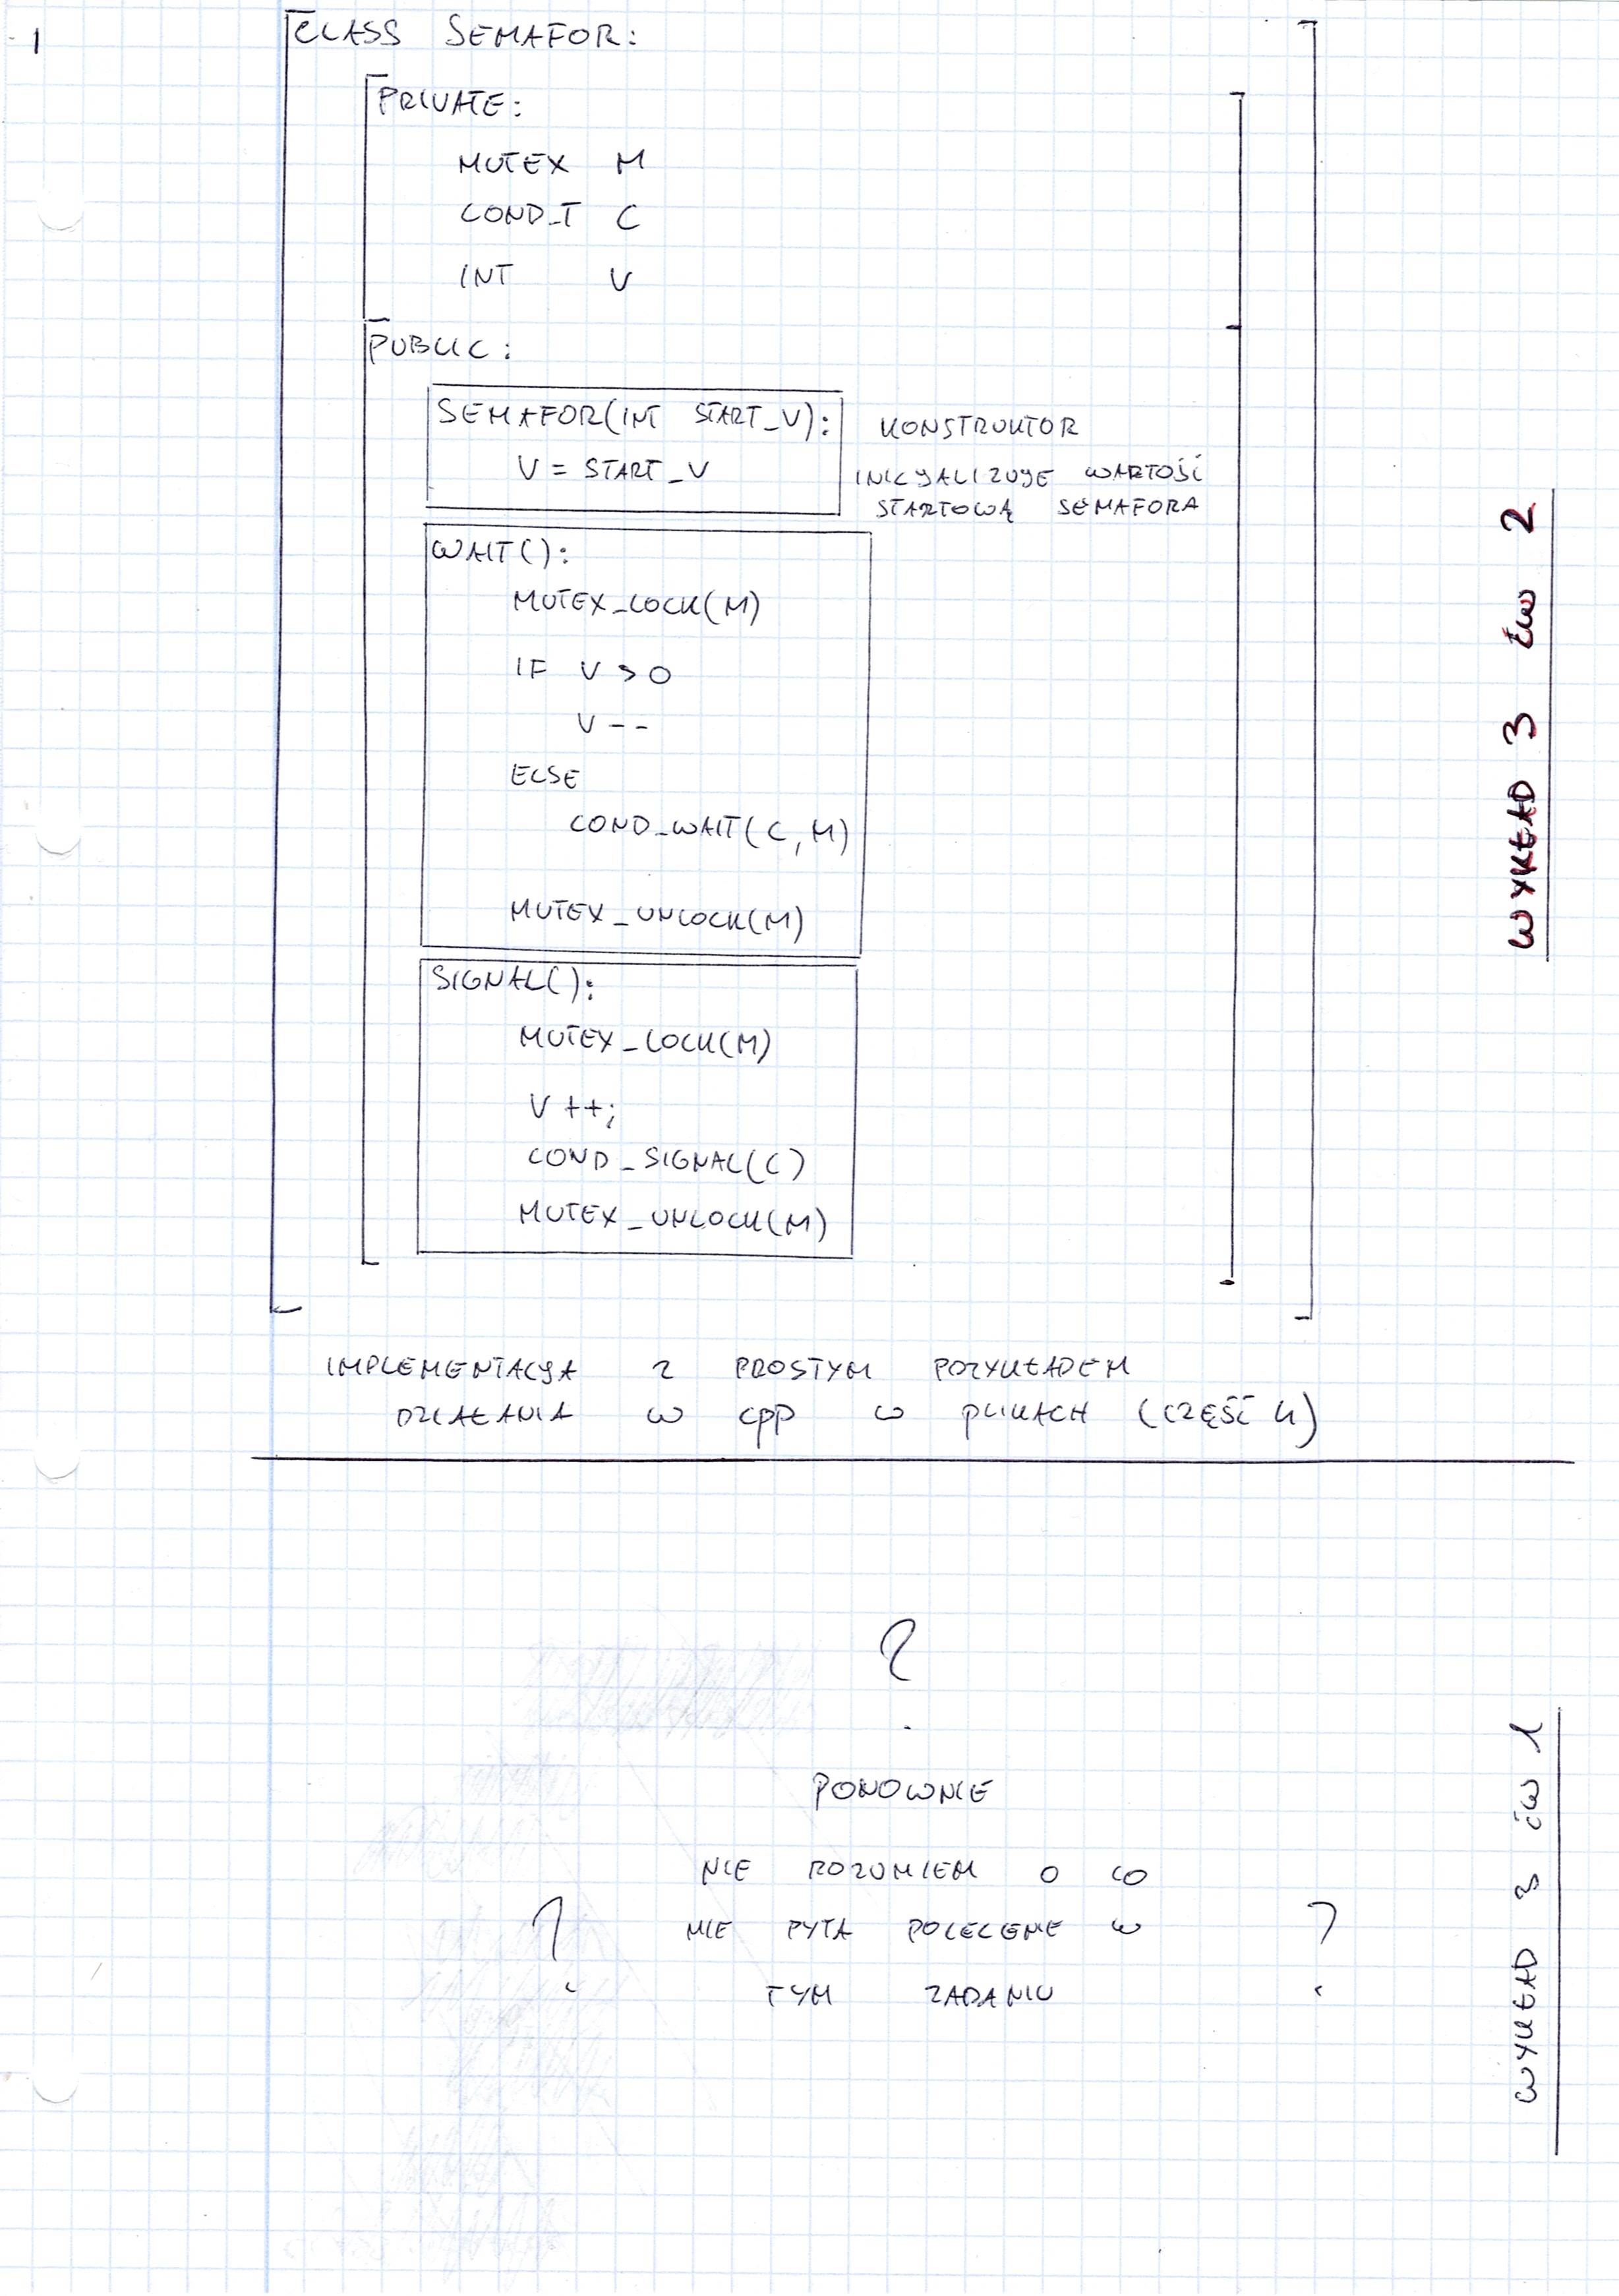 1
CLASS SEMAFOR:
PRIVATE:
MUTEX M
COND_T C
INT V
PUBLIC:
SEMAFOR(INT START_V):
V = START_V
KONSTRUKTOR
INICJALIZUJE WARTOŚĆ
STARTOWĄ SEMAFORA
WAIT():
MUTEX_LOCK(M)
IF V > 0
V--
ELSE
COND_WAIT(C, M)
MUTEX_UNLOCK(M)
SIGNAL():
MUTEX_LOCK(M)
V++;
COND_SIGNAL(C)
MUTEX_UNLOCK(M)
WYKŁAD 3 ĆW 2
IMPLEMENTACJA Z PROSTYM PRZYKŁADEM
DZIAŁANIA W CPP W PLIKACH (CZĘŚĆ 4)
?
PONOWNIE
NIE ROZUMIEM O CO
? MIE PYTA POLECENIE W ?
TYM ZADANIU
WYKŁAD 3 ĆW 1